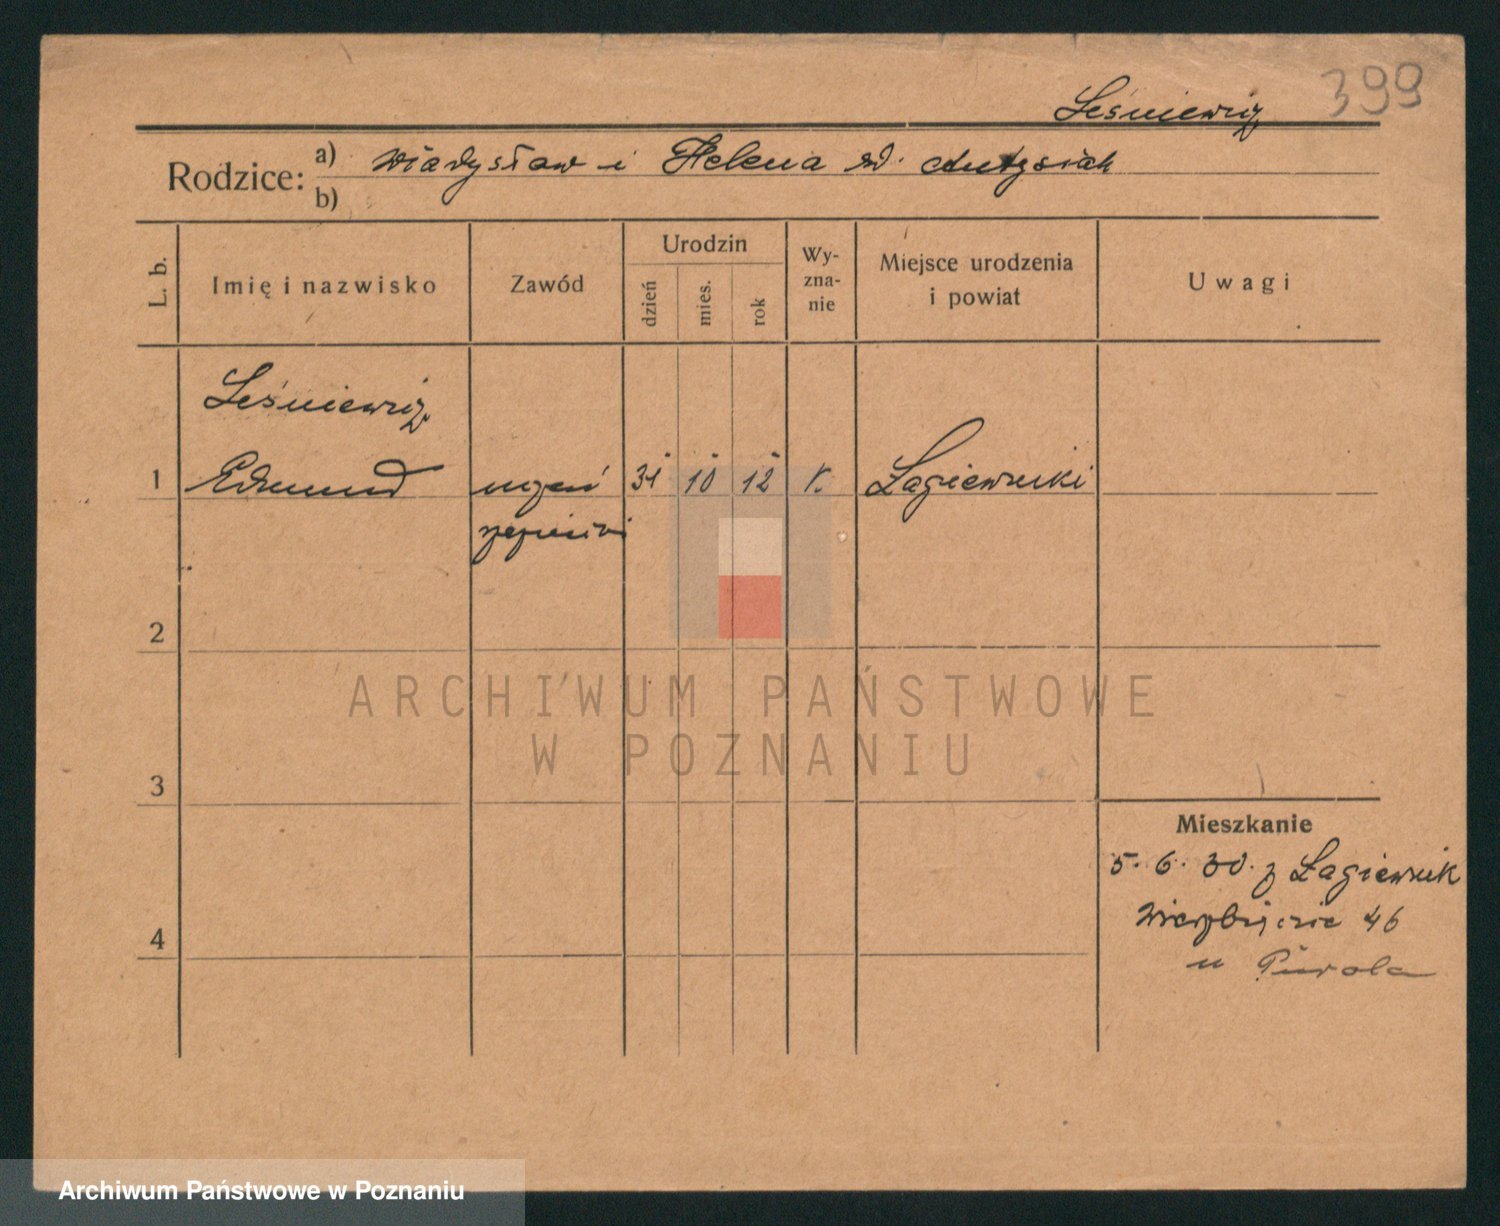 399
Leśniewicz
Rodzice: a) Władysław i Helena zd. Antysiak
b)
L. b. Imię i nazwisko Zawód Urodzin Wy- Miejsce urodzenia Uwagi
dzień mies. rok zna- i powiat
nie
Leśniewicz
1 Edmund uczeń 31 10 12 k. Łagiewniki
2
ARCHIWUM PAŃSTWOWE
W POZNANIU
3
Mieszkanie
5. 6. 30. z Łagiewnik
Wierzbięcice 46
4
u
Archiwum Państwowe w Poznaniu